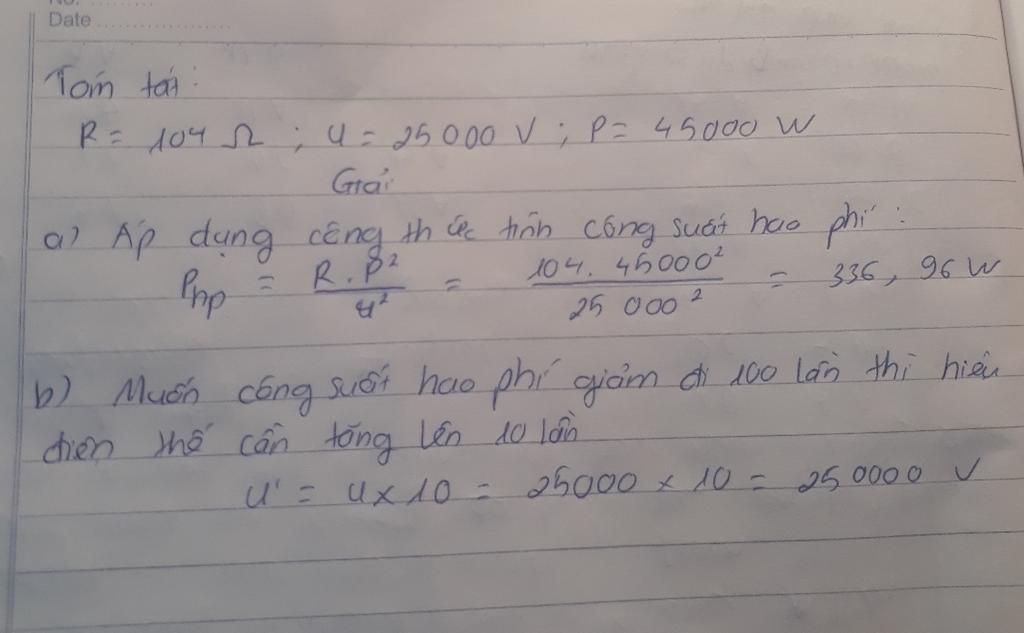 Date
Tóm tắt:
R = 104 Ω ; U = 25000 V ; P = 45000 W
Giải
a) Áp dụng công thức tính công suất hao phí :
Php = R.P²/U² = 104.45000²/25 000² = 336,96 W
b) Muốn công suất hao phí giảm đi 100 lần thì hiệu
điện thế cần tăng lên 10 lần
U' = U x 10 = 25000 x 10 = 25 0000 V